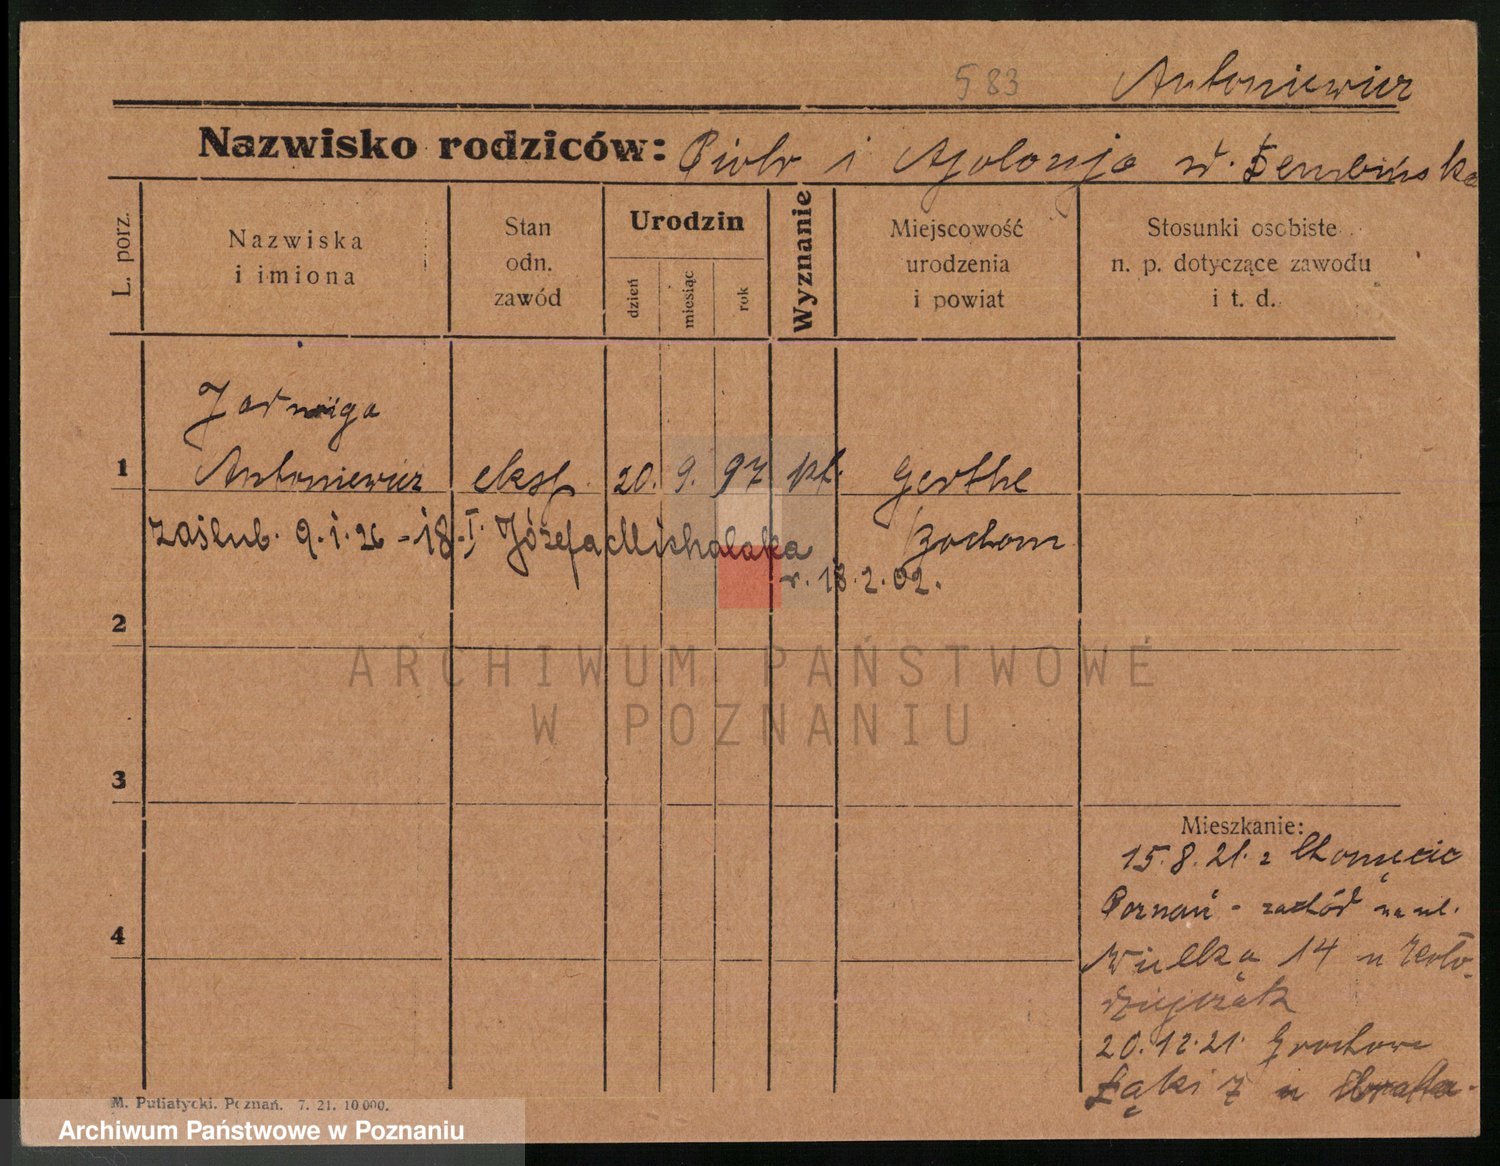 583 Antoniewicz
Nazwisko rodziców: Piotr i Apolonja d. Dembińska
L. porz.
Nazwiska
i imiona
Stan
odn.
zawód
Urodzin
dzień
miesiąc
rok
Wyznanie
Miejscowość
urodzenia
i powiat
Stosunki osobiste
n. p. dotyczące zawodu
i t. d.
Jadwiga
1 Antoniewicz eksp. 20. 9. 97 kt. Gerthe
zaślub. 9.1.26 - 18.I. Józefa Michalaka Bochom
r. 18.2.02.
2
ARCHIWUM PAŃSTWOWE
W POZNANIU
3
Mieszkanie:
15.8.21. z Chomęcic
Poznań - zachód na ul.
4
Wielka 14 u Koło-
dziejczak
20.12.21. Grochowe
Łąki 7 u
M. Putiatycki. Poznań. 7. 21. 10 000.
Archiwum Państwowe w Poznaniu